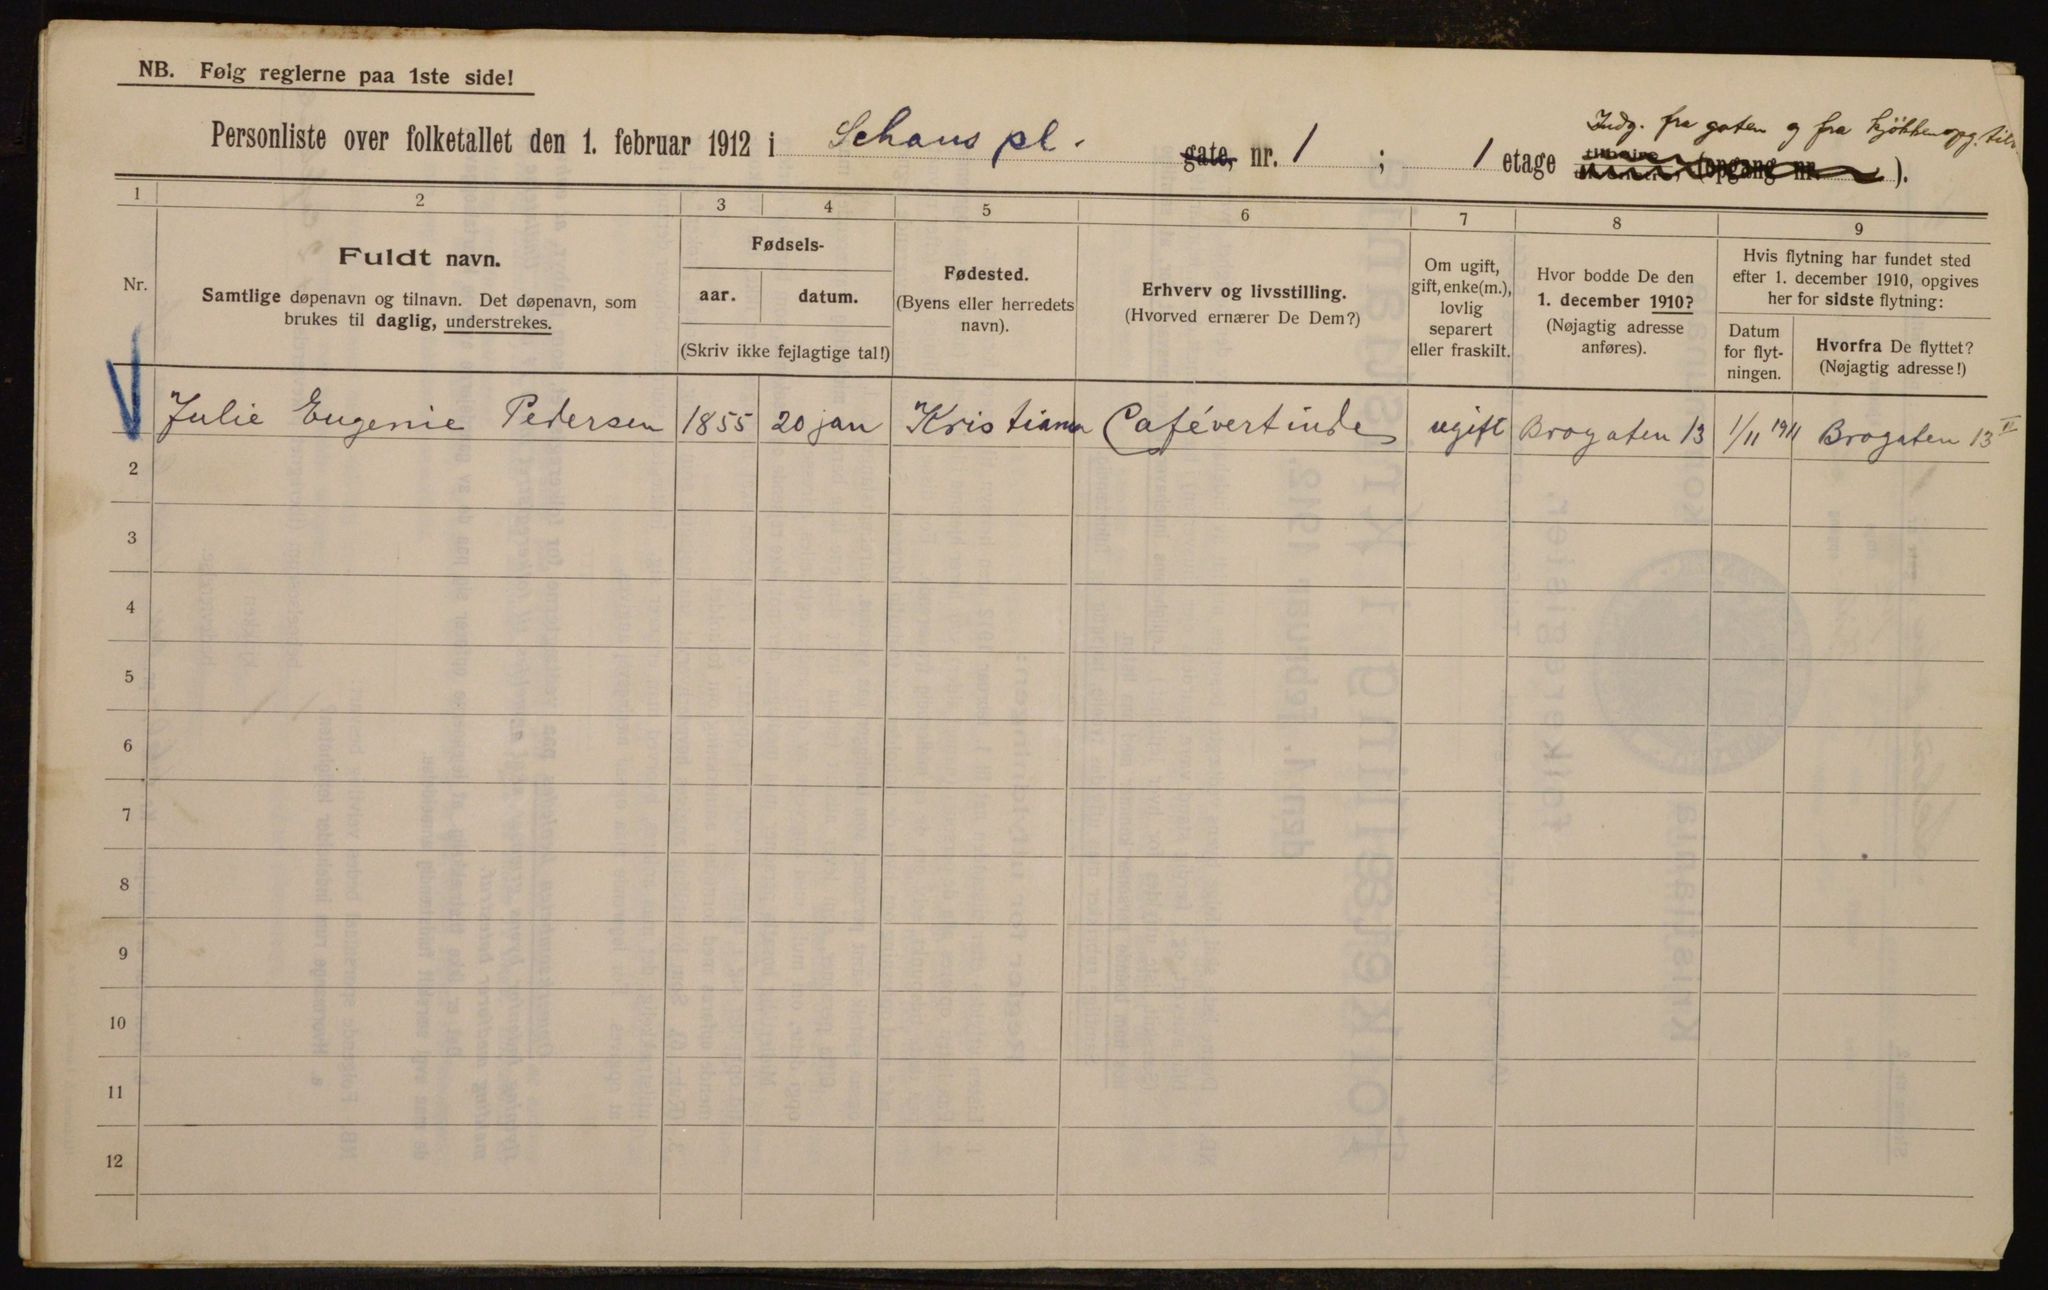 NB. Følg reglerne paa 1ste side!
Indg. fra gaten og fra kjøkkenopg. til
Personliste over folketallet den 1. februar 1912 i Schous pl. gate, nr. 1 ; 1 etage (opgang nr. ).
1 2 3 4 5 6 7 8 9
Nr.
Fuldt navn.
Samtlige døpenavn og tilnavn. Det døpenavn, som
brukes til daglig, understrekes.
Fødsels-
aar. datum.
(Skriv ikke fejlagtige tal!)
Fødested.
(Byens eller herredets
navn).
Erhverv og livsstilling.
(Hvorved ernærer De Dem?)
Om ugift,
gift, enke(m.),
lovlig
separert
eller fraskilt.
Hvor bodde De den
1. december 1910?
(Nøjagtig adresse
anføres).
Hvis flytning har fundet sted
efter 1. december 1910, opgives
her for sidste flytning:
Datum
for flyt-
ningen.
Hvorfra De flyttet?
(Nøjagtig adresse!)
Julie Eugenie Pedersen 1855 20 jan Kristiania Cafévertinde ugift Brogaten 13 1/11 1911 Brogaten 13 II
2
3
4
5
6
7
8
9
10
11
12